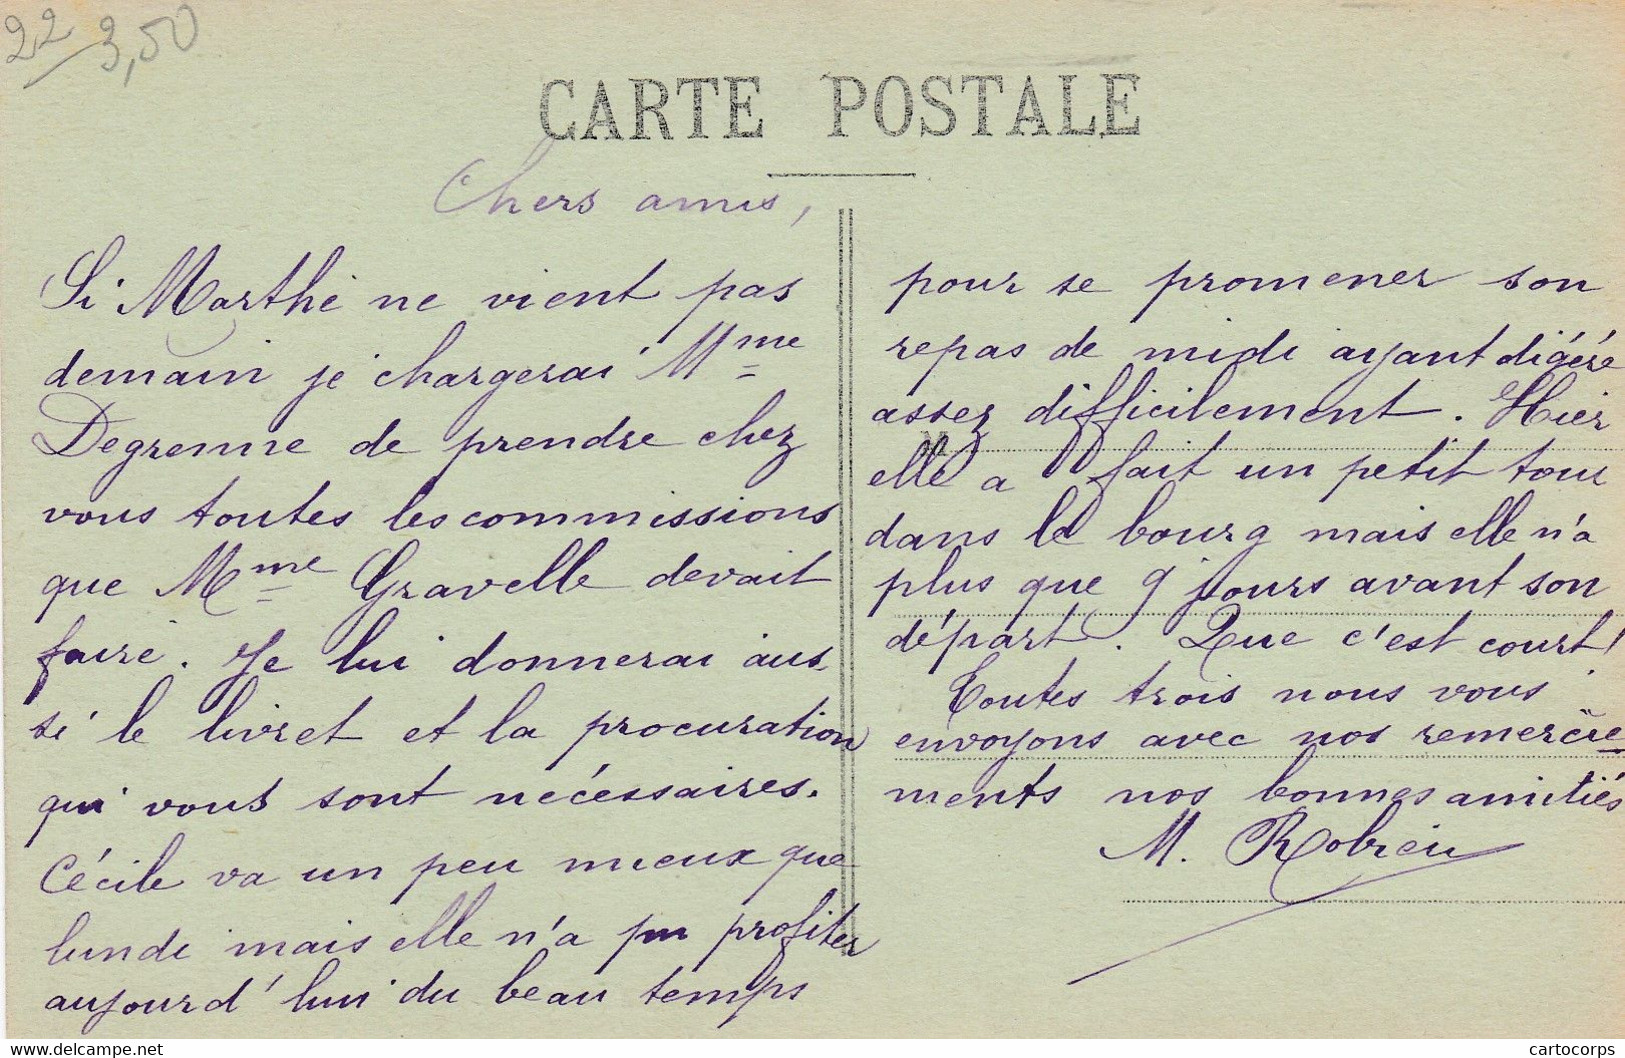 22 3,50
CARTE POSTALE
Chers amis,
Si Marthe ne vient pas
demain je chargerai Mme
Degrenne de prendre chez
vous toutes les commissions
que Mme Gravelle devait
faire. Je lui donnerai aus-
si le livret et la procuration
qui vous sont nécessaires.
Cécile va un peu mieux que
lundi mais elle n'a pu profiter
aujourd'hui du beau temps
pour se promener son
repas de midi ayant digéré
assez difficilement. Hier
elle a fait un petit tour
dans le bourg mais elle n'a
plus que 9 jours avant son
départ. Que c'est court!
Toutes trois nous vous
envoyons avec nos remercie-
ments nos bonnes amitiés
M. Robieu
cartocorps